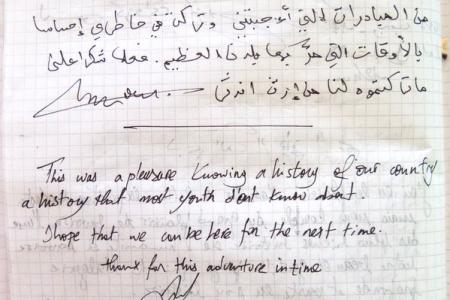 من المبادرات التي أعجبتني وتركت في خاطري إحساسا
بالأوقات التي مرّ بها بلدنا العظيم. فعلا شكرا على
لنا من إرث
This was a pleasure Knowing a history of our country
a history that most youth dont know about.
I hope that we can be here for the next time.
thank for this adventure in time